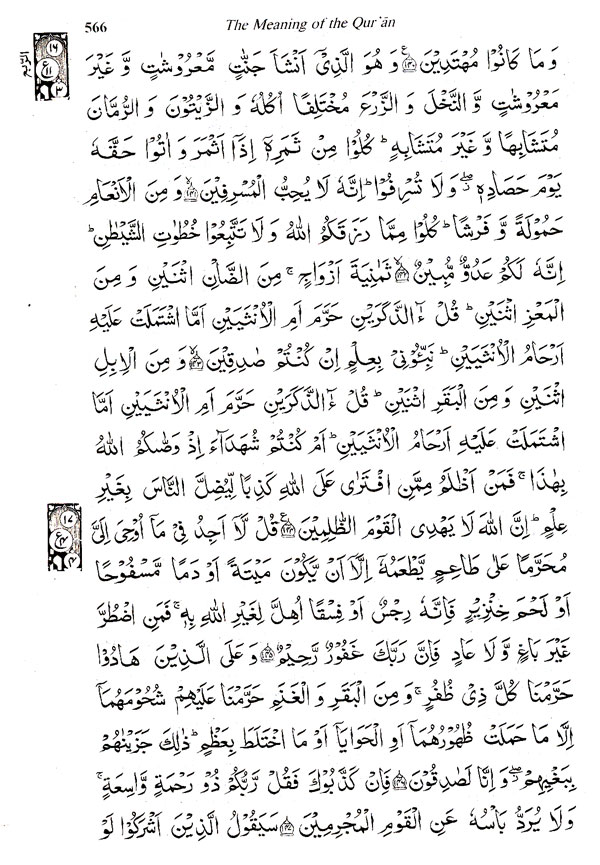 566 The Meaning of the Qur'ān
وَ مَا كَانُوۡا مُهۡتَدِيۡنَ ﴿۱۴۰﴾ وَ هُوَ الَّذِىۡۤ اَنۡشَاَ جَنّٰتٍ مَّعۡرُوۡشٰتٍ وَّ غَيۡرَ
مَعۡرُوۡشٰتٍ وَّ النَّخۡلَ وَ الزَّرۡعَ مُخۡتَلِفًا اُكُلُهٗ وَ الزَّيۡتُوۡنَ وَ الرُّمَّانَ
مُتَشَابِهًا وَّ غَيۡرَ مُتَشَابِهٍ ؕ كُلُوۡا مِنۡ ثَمَرِهٖۤ اِذَاۤ اَثۡمَرَ وَ اٰتُوۡا حَقَّهٗ
يَوۡمَ حَصَادِهٖ ۖ وَ لَا تُسۡرِفُوۡا ؕ اِنَّهٗ لَا يُحِبُّ الۡمُسۡرِفِيۡنَ ﴿۱۴۱﴾ وَ مِنَ الۡاَنۡعَامِ
حَمُوۡلَةً وَّ فَرۡشًا ؕ كُلُوۡا مِمَّا رَزَقَكُمُ اللّٰهُ وَ لَا تَتَّبِعُوۡا خُطُوٰتِ الشَّيۡطٰنِ ؕ
اِنَّهٗ لَكُمۡ عَدُوٌّ مُّبِيۡنٌ ﴿۱۴۲﴾ ثَمٰنِيَةَ اَزۡوَاجٍ ۚ مِنَ الضَّاۡنِ اثۡنَيۡنِ وَ مِنَ
الۡمَعۡزِ اثۡنَيۡنِ ؕ قُلۡ ءٰٓالذَّكَرَيۡنِ حَرَّمَ اَمِ الۡاُنۡثَيَيۡنِ اَمَّا اشۡتَمَلَتۡ عَلَيۡهِ
اَرۡحَامُ الۡاُنۡثَيَيۡنِ ؕ نَبِّـُٔوۡنِىۡ بِعِلۡمٍ اِنۡ كُنۡتُمۡ صٰدِقِيۡنَ ﴿۱۴۳﴾ وَ مِنَ الۡاِبِلِ
اثۡنَيۡنِ وَ مِنَ الۡبَقَرِ اثۡنَيۡنِ ؕ قُلۡ ءٰٓالذَّكَرَيۡنِ حَرَّمَ اَمِ الۡاُنۡثَيَيۡنِ اَمَّا
اشۡتَمَلَتۡ عَلَيۡهِ اَرۡحَامُ الۡاُنۡثَيَيۡنِ ؕ اَمۡ كُنۡتُمۡ شُهَدَآءَ اِذۡ وَصّٰكُمُ اللّٰهُ
بِهٰذَا ۚ فَمَنۡ اَظۡلَمُ مِمَّنِ افۡتَرٰى عَلَى اللّٰهِ كَذِبًا لِّيُضِلَّ النَّاسَ بِغَيۡرِ
عِلۡمٍ ؕ اِنَّ اللّٰهَ لَا يَهۡدِى الۡقَوۡمَ الظّٰلِمِيۡنَ ﴿۱۴۴﴾ قُلۡ لَّاۤ اَجِدُ فِىۡ مَاۤ اُوۡحِىَ اِلَىَّ
مُحَرَّمًا عَلٰى طَاعِمٍ يَّطۡعَمُهٗۤ اِلَّاۤ اَنۡ يَّكُوۡنَ مَيۡتَةً اَوۡ دَمًا مَّسۡفُوۡحًا
اَوۡ لَحۡمَ خِنۡزِيۡرٍ فَاِنَّهٗ رِجۡسٌ اَوۡ فِسۡقًا اُهِلَّ لِغَيۡرِ اللّٰهِ بِهٖ ۚ فَمَنِ اضۡطُرَّ
غَيۡرَ بَاغٍ وَّ لَا عَادٍ فَاِنَّ رَبَّكَ غَفُوۡرٌ رَّحِيۡمٌ ﴿۱۴۵﴾ وَ عَلَى الَّذِيۡنَ هَادُوۡا
حَرَّمۡنَا كُلَّ ذِىۡ ظُفُرٍ ۚ وَ مِنَ الۡبَقَرِ وَ الۡغَنَمِ حَرَّمۡنَا عَلَيۡهِمۡ شُحُوۡمَهُمَاۤ
اِلَّا مَا حَمَلَتۡ ظُهُوۡرُهُمَاۤ اَوِ الۡحَوَايَاۤ اَوۡ مَا اخۡتَلَطَ بِعَظۡمٍ ؕ ذٰلِكَ جَزَيۡنٰهُمۡ
بِبَغۡيِهِمۡ ۖ وَ اِنَّا لَصٰدِقُوۡنَ ﴿۱۴۶﴾ فَاِنۡ كَذَّبُوۡكَ فَقُلۡ رَّبُّكُمۡ ذُوۡ رَحۡمَةٍ وَّاسِعَةٍ ۚ
وَ لَا يُرَدُّ بَاۡسُهٗ عَنِ الۡقَوۡمِ الۡمُجۡرِمِيۡنَ ﴿۱۴۷﴾ سَيَقُوۡلُ الَّذِيۡنَ اَشۡرَكُوۡا لَوۡ